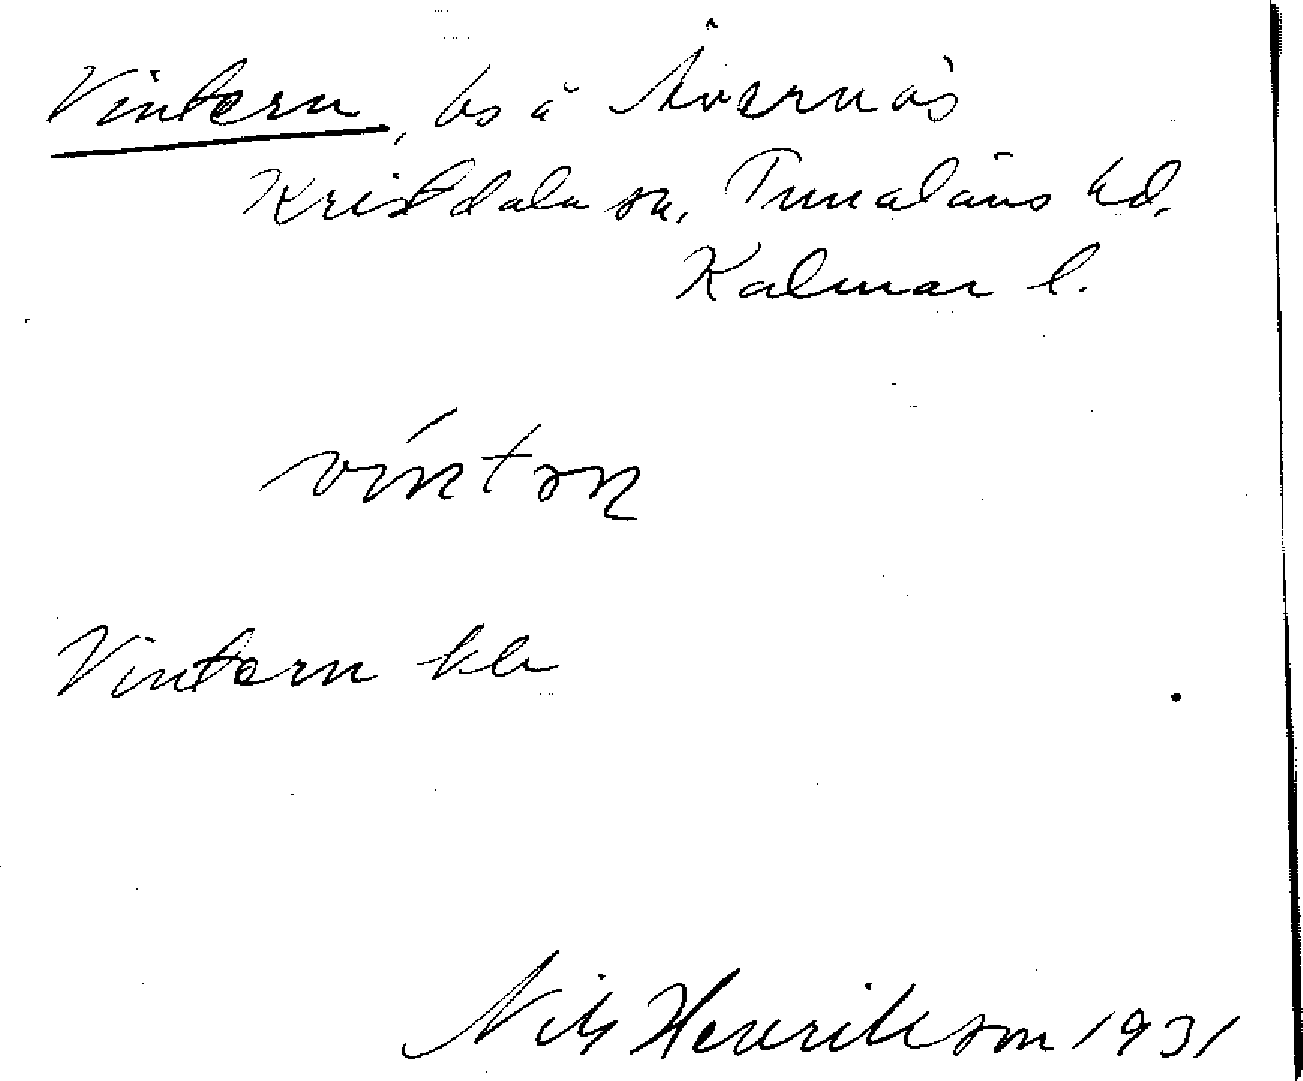 Vintern, bs å Ävernäs
Kristdala sn, Tunaläns hd.
Kalmar l.
víntəɳ
Vintern kla
Nils Henrikson 1931